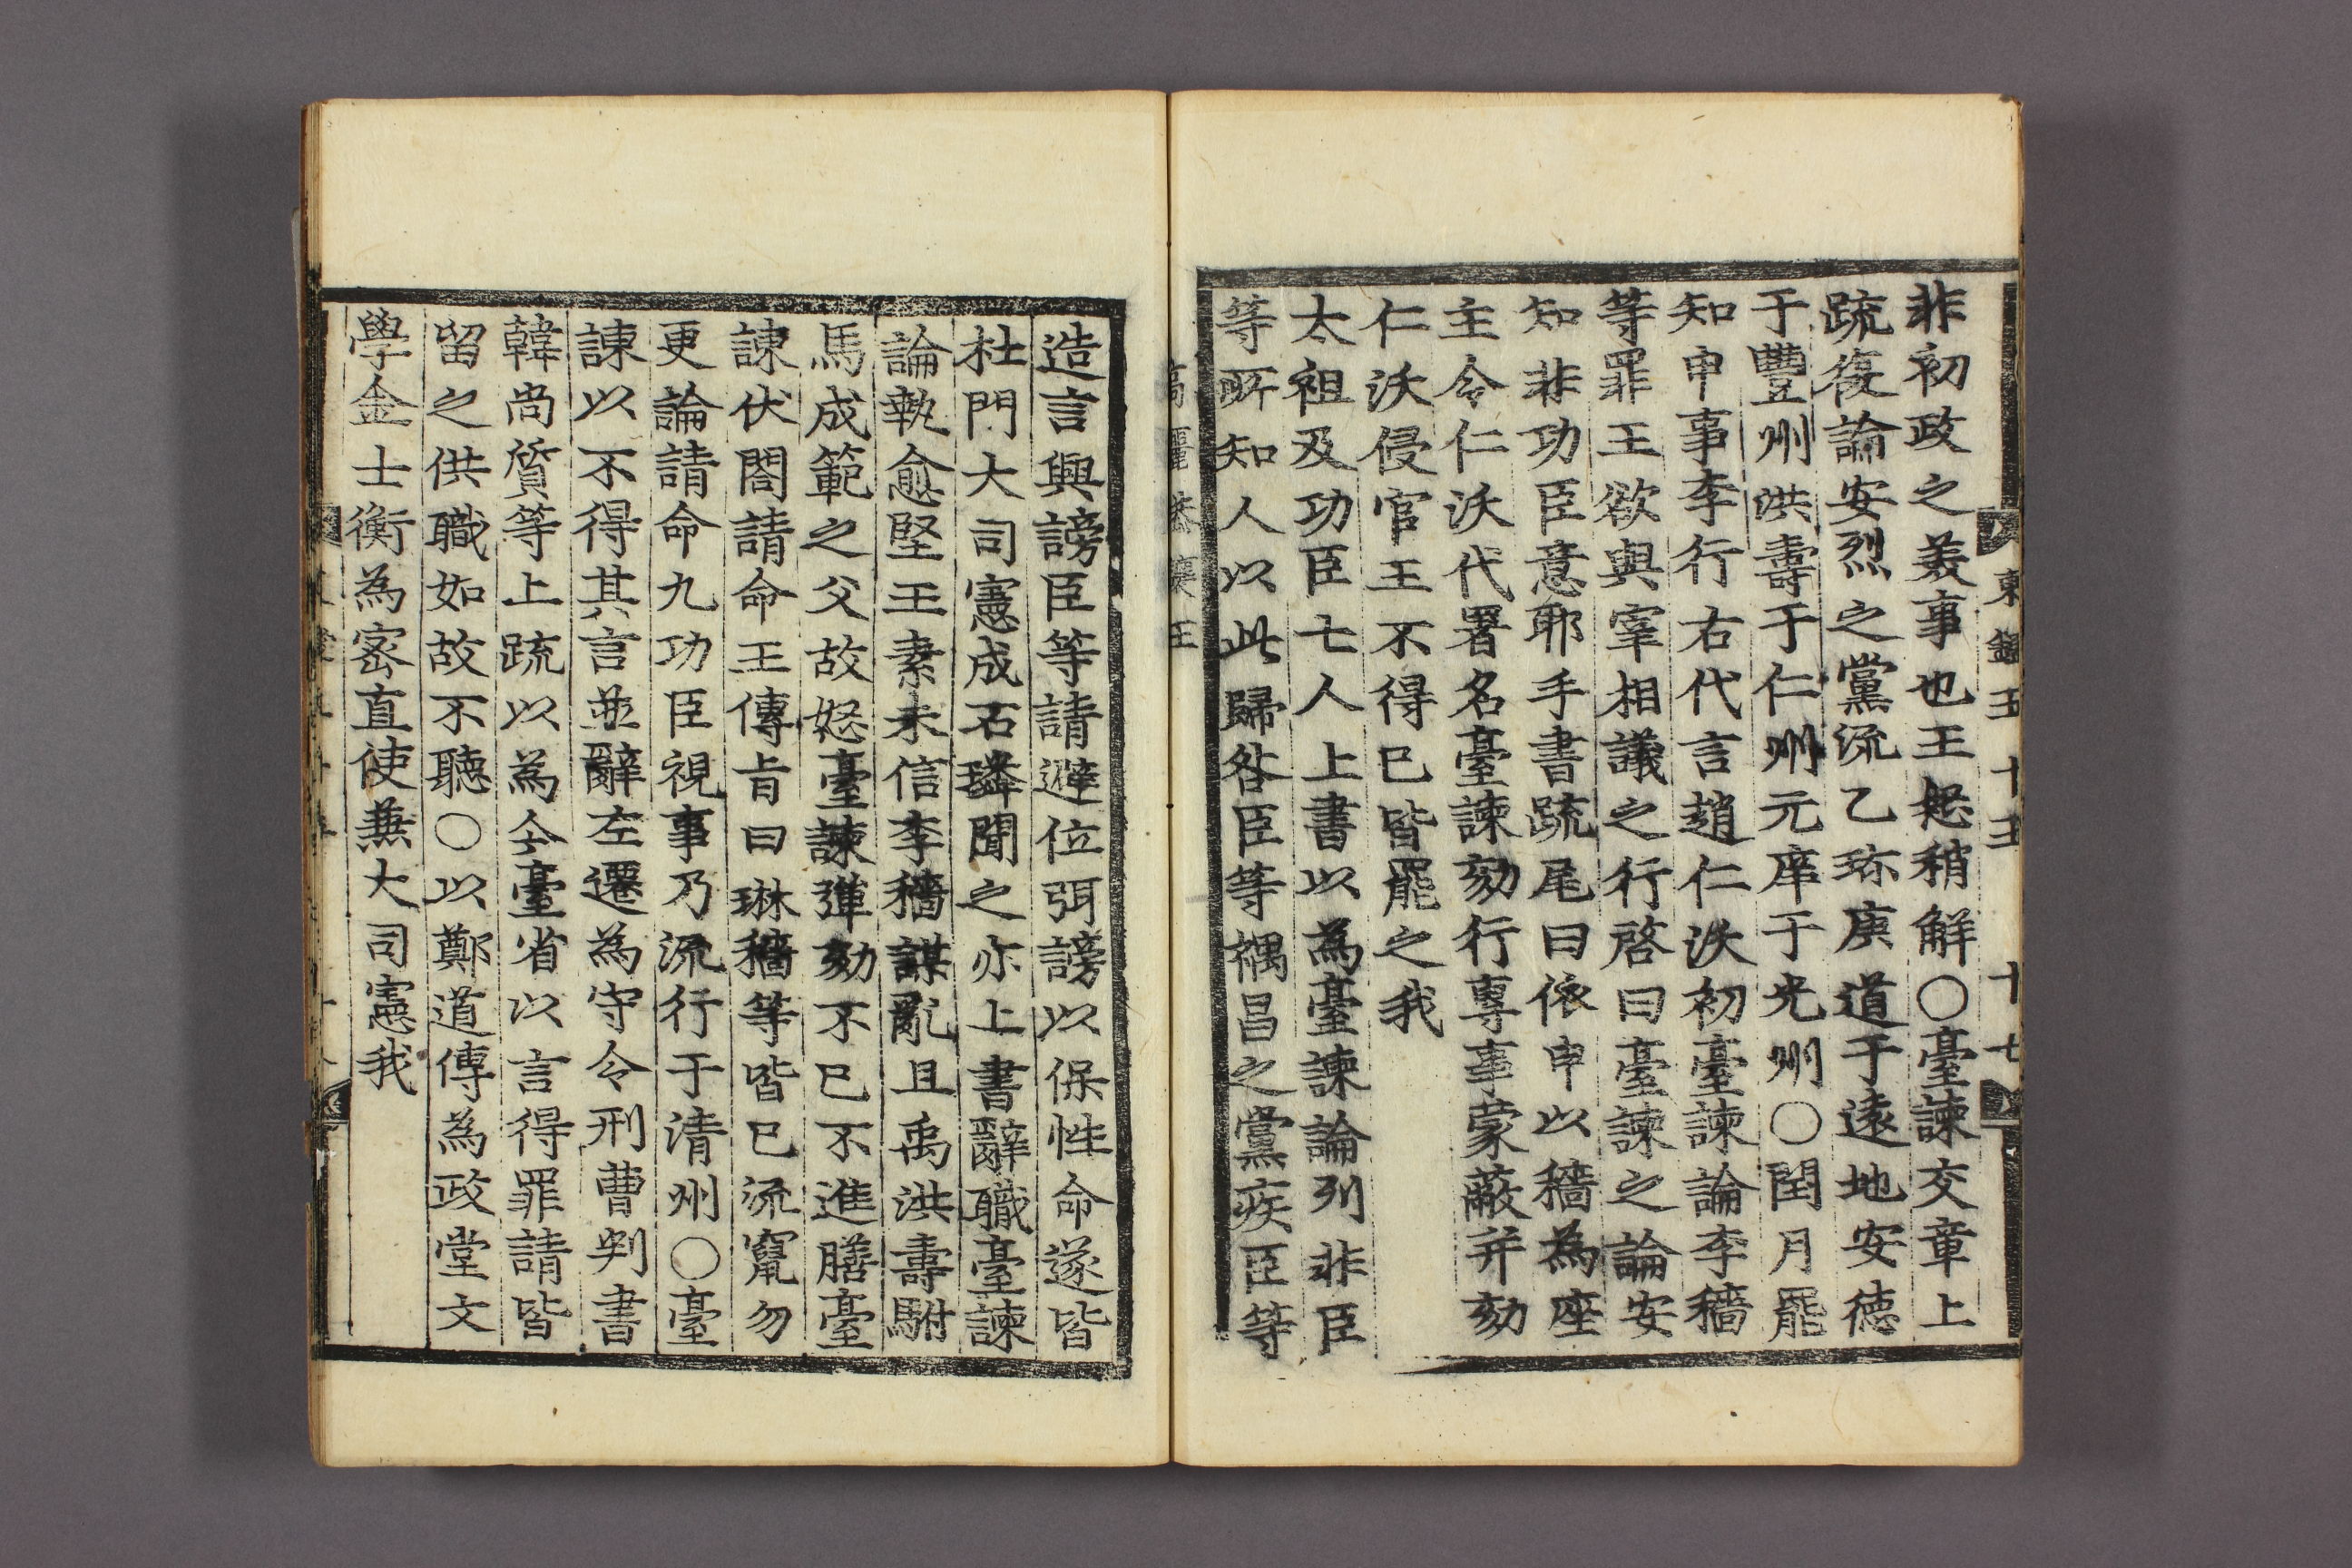 東鑑五十五 十七
非初政之美事也王怒稍解○臺諫交章上
疏復論安烈之黨流乙珎庚道于遠地安德
于豐州洪壽于仁州元庠于光州○閏月罷
知申事李行右代言趙仁沃初臺諫論李穡
等罪王欲與宰相議之行啓曰臺諫之論安
知非功臣意耶手書疏尾曰依申以穡為座
主令仁沃代署名臺諫劾行專事蒙蔽并劾
仁沃侵官王不得已皆罷之我
太祖及功臣七人上書以為臺諫論列非臣
等所知人以此歸咎臣等禑昌之黨疾臣等
高麗恭讓王
造言興謗臣等請避位弭謗以保性命遂皆
杜門大司憲成石璘聞之亦上書辭職臺諫
論執愈堅王素未信李穡謀亂且禹洪壽駙
馬成範之父故怒臺諫彈劾不已不進膳臺
諫伏閤請命王傳旨曰琳穡等皆已流竄勿
更論請命九功臣視事乃流行于清州○臺
諫以不得其言並辭左遷為守令刑曹判書
韓尚質等上疏以為今臺省以言得罪請皆
留之供職如故不聽○以鄭道傳為政堂文
學金士衡為密直使兼大司憲我